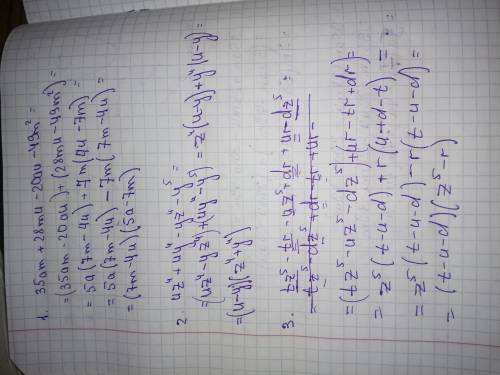 1. 35am + 28mu - 20au - 49m² =
= (35am - 20au) + (28mu - 49m²) =
= 5a(7m - 4u) + 7m(4u - 7m) =
= 5a(7m - 4u) - 7m(7m - 4u) =
= (7m - 4u)(5a - 7m)
2. uz⁴ + uy⁴ - yz⁴ - y⁵ =
= (uz⁴ - yz⁴) + (uy⁴ - y⁵) = z⁴(u - y) + y⁴(u - y) =
= (u - y)(z⁴ + y⁴)
3. tz⁵ - tr - uz⁵ + dr + ur - dz⁵ =
tz⁵ - dz⁵ + dr - tr + ur -
= (tz⁵ - uz⁵ - dz⁵) + (ur - tr + dr) =
= z⁵(t - u - d) + r(u + d - t) =
= z⁵(t - u - d) - r(t - u - d) =
= (t - u - d)(z⁵ - r)